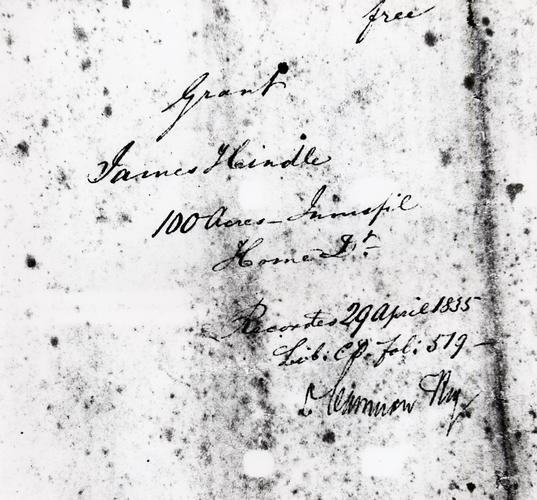 free
Grant
James Hindle
100 Acres – Innisfil
Home Dt.
Recorded 29 April 1835
Lib: CD. Fol: 519 –
D Cameron Rg.